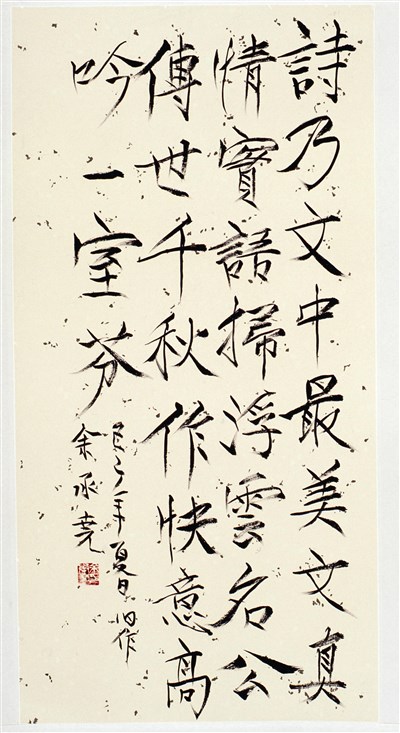 詩乃文中最美文真
情實語掃浮雲名公
傳世千秋作快意高
吟一室芬
年夏日旧作
余承堯